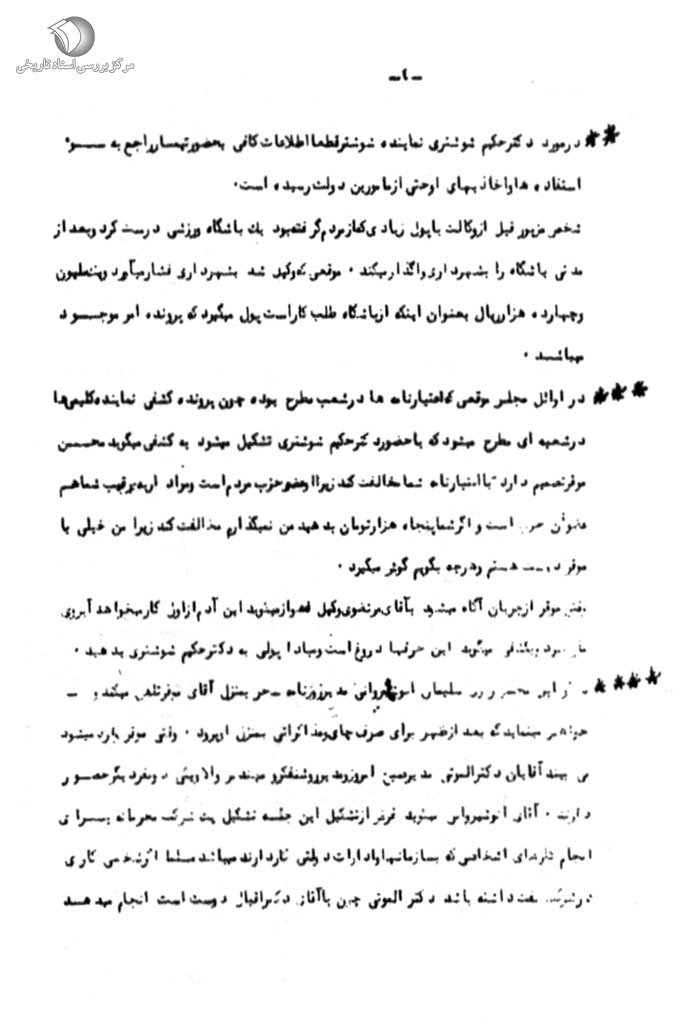 مرکز بررسی اسناد تاریخی
-٤-
** درمورد دکترحکیم شوشتری نماینده شوشترقطعا اطلاعات کافی بحضورتیمسارراجع به ســـو٠
استفاده هاواخاذیهای اوحتی ازمامورین دولت رسیده است.
شخص مزبور قبل ازوکالت باپول زیادی که‌ازمردم‌گرفته‌بود یك باشگاه ورزشی درست کرد وبعد از
مدتی باشگاه را بشهرداری واگذارمیکند . موقعی که‌وکیل شد بشهرداری فشارمیآورد
وچهارده هزارریال بعنوان اینکه ازباشگاه طلب کاراست پول میگیرد که پرونده امر موجـــود
میباشـد .
*** در اوائل مجلس موقعی که‌اعتبارنامه ها درشعب مطرح بوده چون پرونده کشفی نماینده‌کلیمی‌ها
درشعبه ای مطرح میشود که باحضور دکترحکیم شوشتری تشکیل میشود به کشفی میگوید محســن
موقرتصمیم دارد بااعتبارنامه شما مخالفت کند زیرا اوعضو حزب مردم است شماهم
عضو آن حزب است و اگرشماپنجاه هزارتومان بدهید من نمیگذارم مخالفت کند زیرا من خیلی با
موقر دوست هستم وهرچه بگویم گوش میگیرد .
موقر ازجریان آگاه میشود بآقای مرتضوی وکیل میگوید این آدم ازاول کارمیخواهد آبروی
میگوید این حرفها دروغ است ومبادا پولی به دکترحکیم شوشتری بدهید .
**** سلیمان انوشیروانی مدیرروزنامه سحر بمنزل آقای موقرتلفن میکند و -
خواهش مینماید که بعد ازظهر برای صرف چای ومذاکراتی بمنزل اوبرود . وقتی موقر وارد میشود
می بیند آقایان دکترالموتی مدیر امروز ومدیر روشنفکر و مهندس والا ویکی دونفر دیگر حضــور
دارند . آقای انوشیروانی میگوید غرض ازتشکیل این جلسه تشکیل یك شرکت محرمانه بـــرای
انجام کارهای اشخاصی که بسازمانهاوادارات دولتی کاردارند میباشد مسلما اگرشخصی کاری
درشرکت نفت داشته باشد دکتر الموتی چون باآقای دکتراقبال دوست است انجام میدهــد